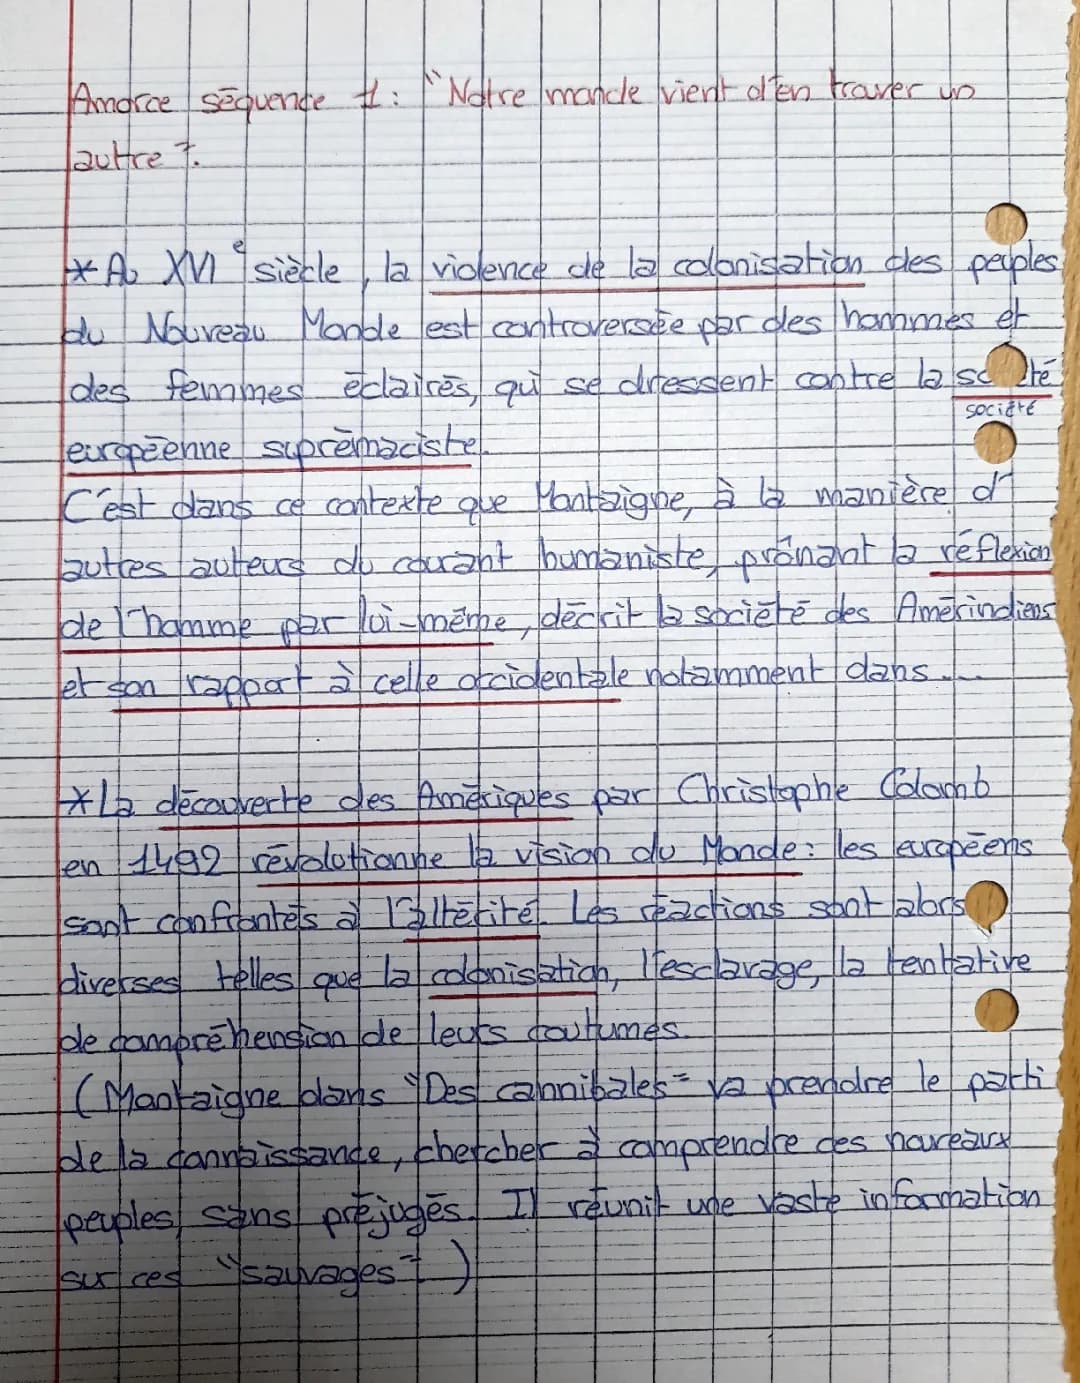 Amorce séquence 1 : "Notre monde vient d'en trouver un
autre".
* Au XVIe siècle, la violence de la colonisation des peuples
du Nouveau Monde est controversée par des hommes et
des femmes éclairés, qui se dressent contre la société
société
européenne suprémaciste.
C'est dans ce contexte que Montaigne, à la manière d'
autres auteurs du courant humaniste, prônant la réflexion
de l'homme par lui-même, décrit la société des Amérindiens
et son rapport à celle occidentale notamment dans ....
* La découverte des Amériques par Christophe Colomb
en 1492 révolutionne la vision du Monde : les européens
sont confrontés à l'altérité. Les réactions sont alors
diverses telles que la colonisation, l'esclavage, la tentative
de compréhension de leurs coutumes.
(Montaigne dans "Des cannibales" va prendre le parti
de la connaissance, chercher à comprendre des nouveaux
peuples sans préjugés. Il réunit une vaste information
sur ces "sauvages".)